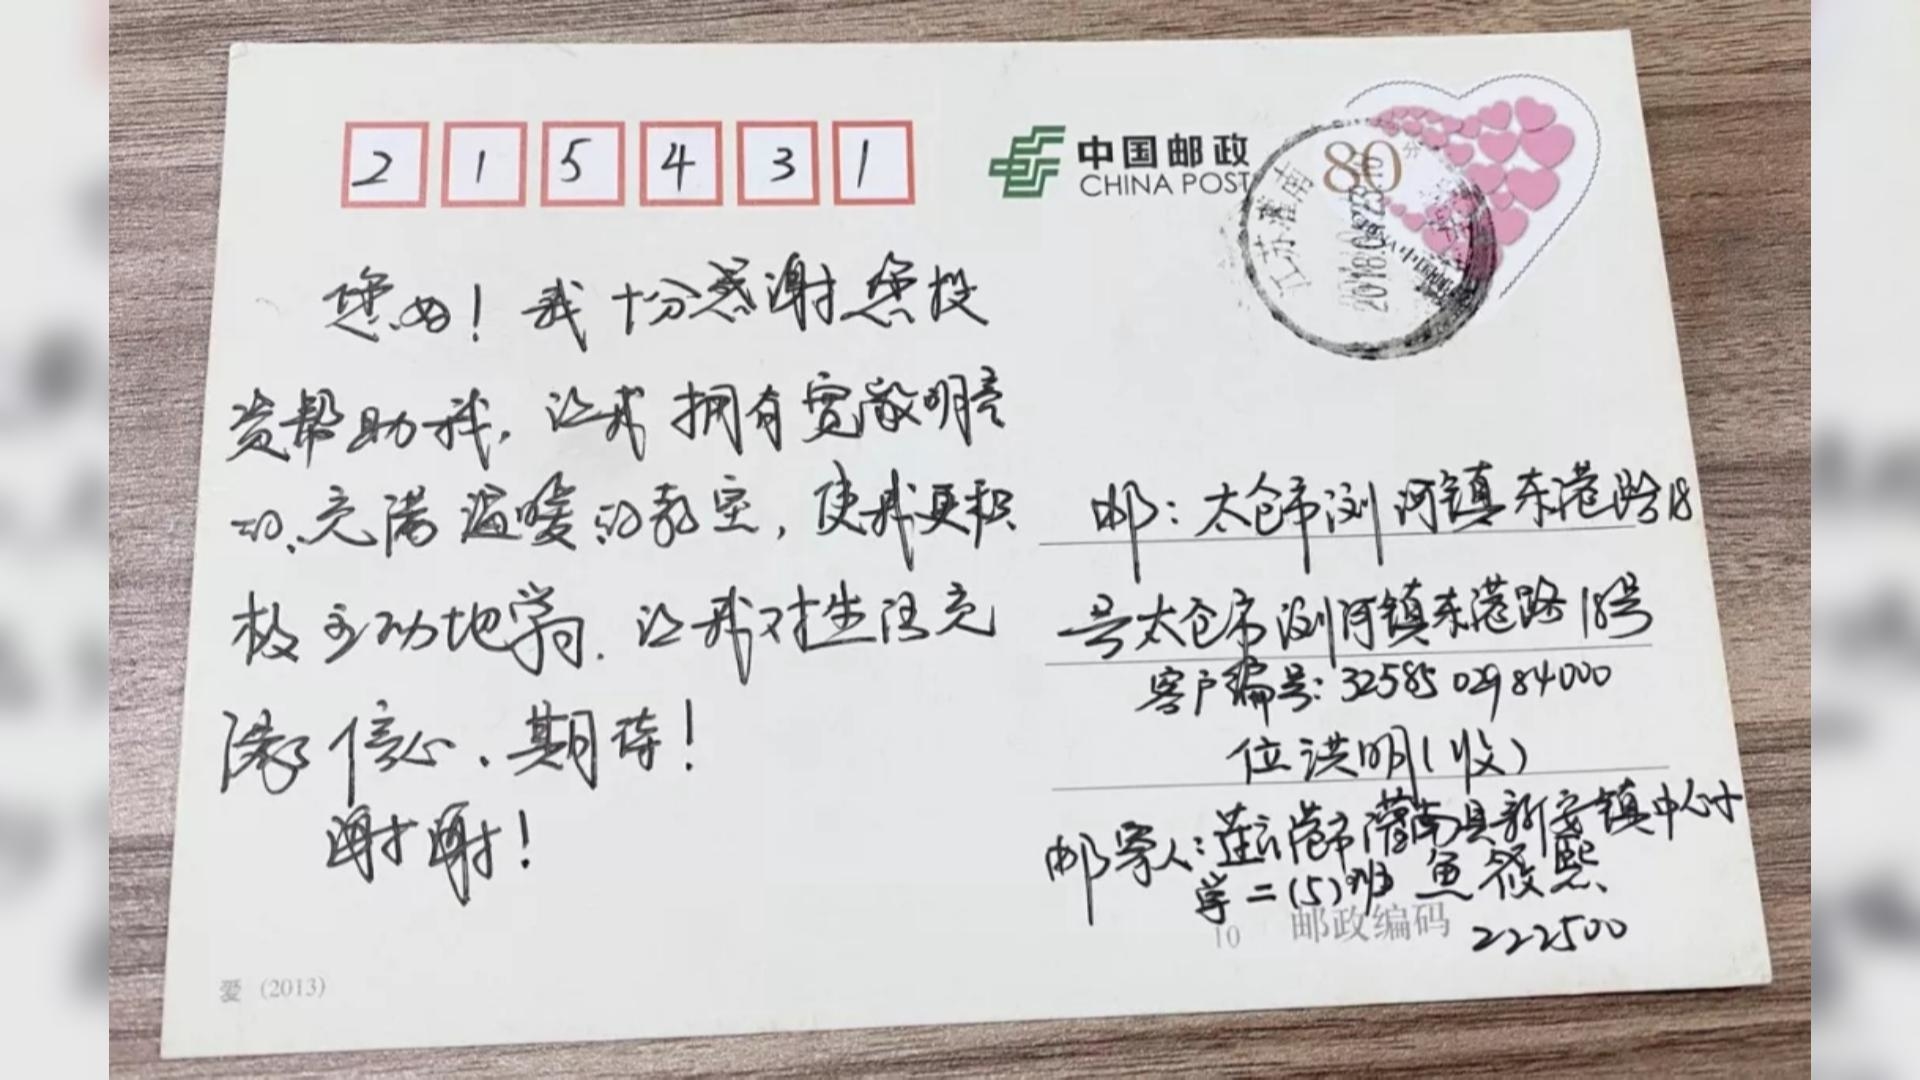 215431
中国邮政
CHINA POST
80分
江苏灌南
您好！我十分感谢您投
资帮助我，让我拥有宽敞明亮
的、充满温暖的教室，使我更积
极主动地学习，让我对生活充
满了信心、期待！
谢谢！
邮：太仓市浏河镇东港路18
号太仓市浏河镇东港路18号
客户编号：3258502984000
位洪明（收）
邮寄人：连云港市灌南县新安镇中心小
学二（5）班 鱼筱熙
10 邮政编码 222500
爱 (2013)